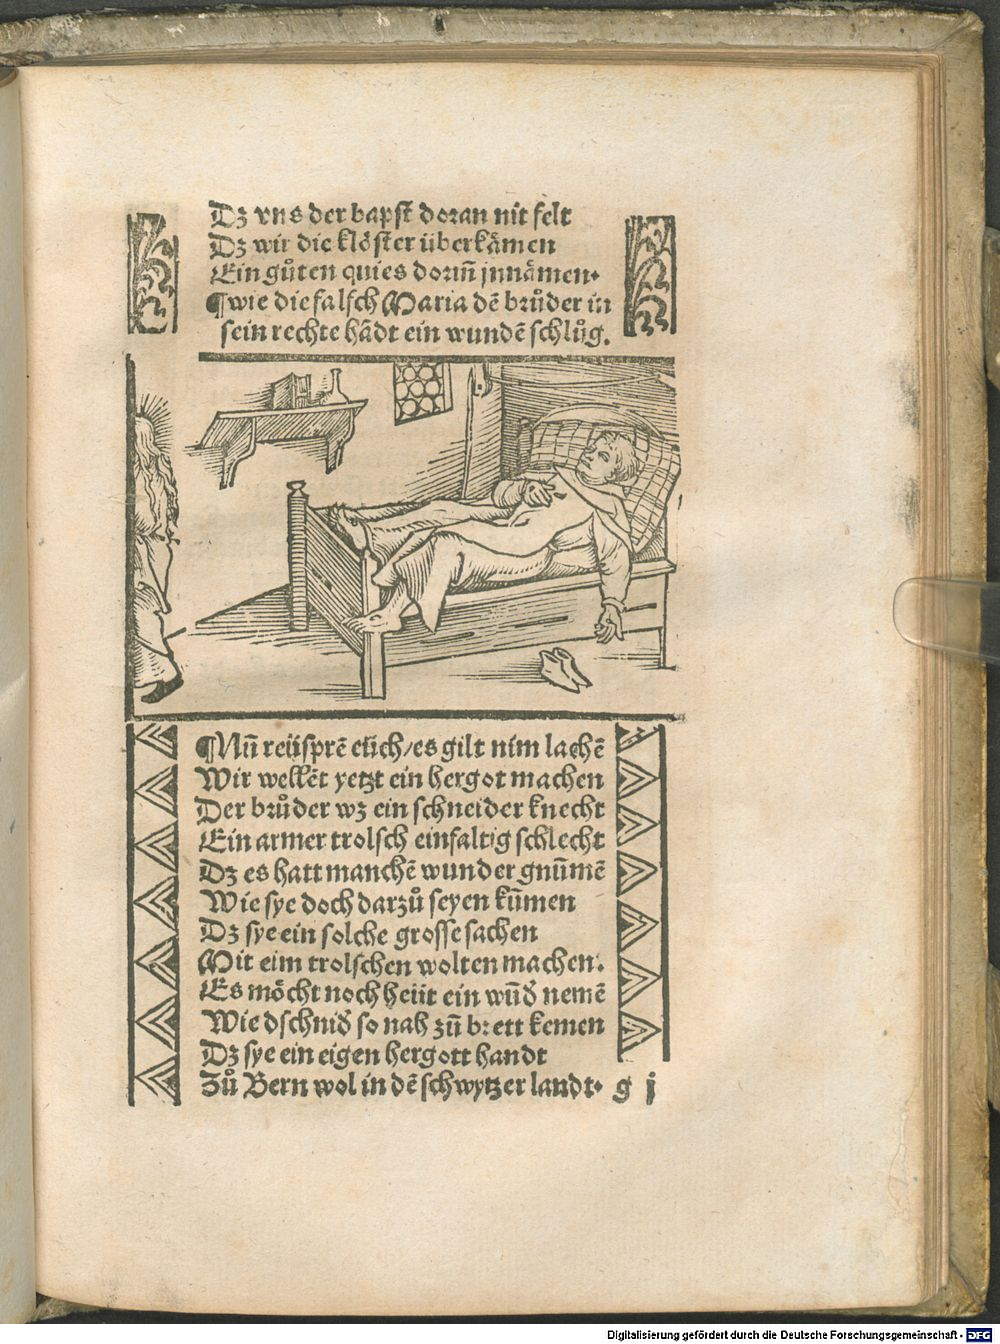 Dz vns der bapst doran nit felt
Dz wir die klöster überkämen
Ein gůten quies dorin̄ jnnämen.
¶wie die falsch Maria dē brůder in
sein rechte hādt ein wundē schlůg.
¶Nun̄ reüsprē etlich/es gilt nim lachē
Wir wellēt yetzt ein hergot machen
Der brůder wz ein schneider knecht
Ein armer trolsch einfaltig schlecht
Dz es hatt manchē wunder gnūmē
Wie sye doch darzů seyen kūmen
Dz sye ein solche grosse sachen
Mit eim trolschen wolten machen.
Es möcht noch heüt ein wūd nemē
Wie dschnid so nah zū brett kemen
Dz sye ein eigen hergott handt
Zů Bern wol in dē schwytzer landt. g j
Digitalisierung gefördert durch die Deutsche Forschungsgemeinschaft - DFG